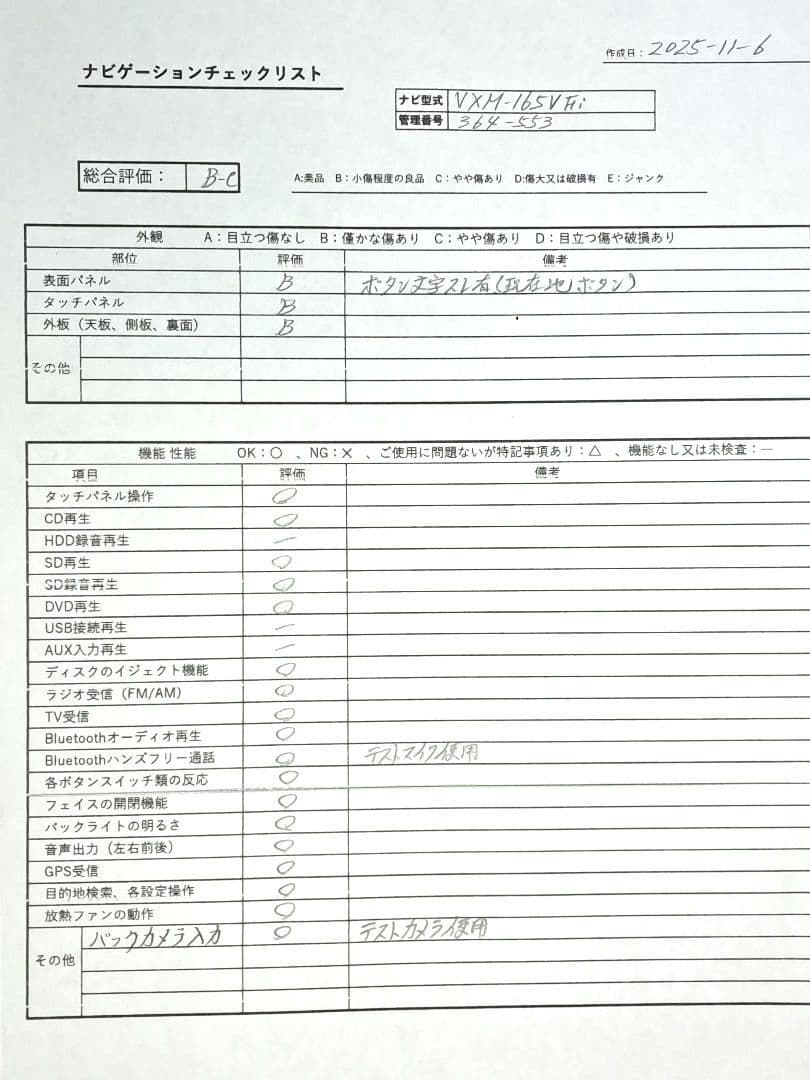 作成日：2025-11-6
ナビゲーションチェックリスト
ナビ型式 VXM-165VFi
管理番号 364-553
総合評価： B-C A:美品 B：小傷程度の良品 C：やや傷あり D:傷大又は破損有 E：ジャンク
外観 A：目立つ傷なし B：僅かな傷あり C：やや傷あり D：目立つ傷や破損あり
部位 評価 備考
表面パネル B ボタン文字スレ有(現在地ボタン)
タッチパネル B
外板（天板、側板、裏面） B
その他
機能 性能 OK：〇 、NG：× 、ご使用に問題ないが特記事項あり：△ 、機能なし又は未検査：―
項目 評価 備考
タッチパネル操作 〇
CD再生 〇
HDD録音再生 ―
SD再生 〇
SD録音再生 〇
DVD再生 〇
USB接続再生 ―
AUX入力再生 ―
ディスクのイジェクト機能 〇
ラジオ受信（FM/AM） 〇
TV受信 〇
Bluetoothオーディオ再生 〇
Bluetoothハンズフリー通話 〇 テストマイク使用
各ボタンスイッチ類の反応 〇
フェイスの開閉機能 〇
バックライトの明るさ 〇
音声出力（左右前後） 〇
GPS受信 〇
目的地検索、各設定操作 〇
放熱ファンの動作 〇
その他 バックカメラ入力 〇 テストカメラ使用